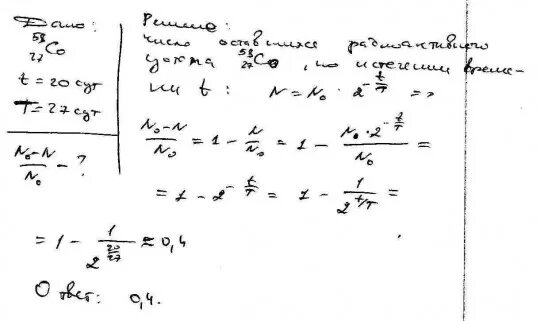 Дано:
⁵⁸₂₇Co
t = 20 сут
T = 27 сут
(N₀–N)/N₀ – ?
Решение:
число оставшихся радиоактивного
⁵⁸₂₇Co, по истечении време-
ни t: N = N₀ · 2^(–t/T) =>
(N₀–N)/N₀ = 1 – N/N₀ = 1 – (N₀·2^(–t/T))/N₀ =
= 1 – 2^(–t/T) = 1 – 1/2^(t/T) =
= 1 – 1/2^(20/27) ≈ 0,4
Ответ: 0,4.